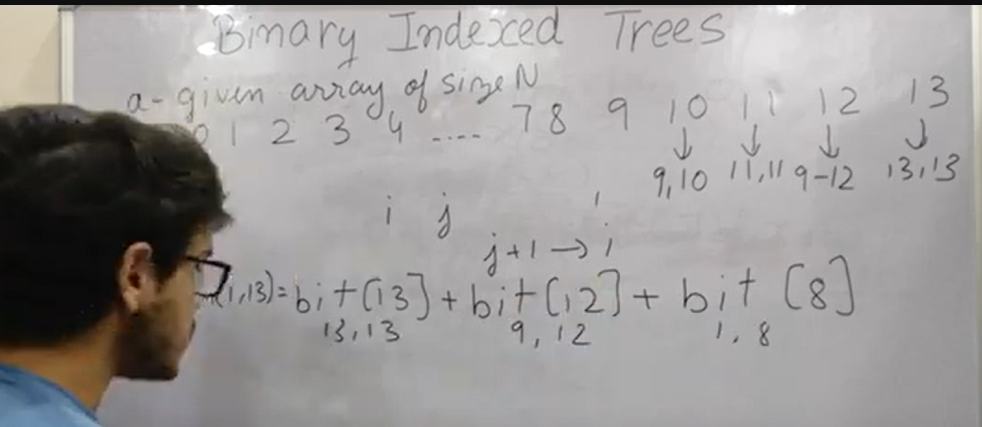 Binary Indexed Trees
a- given array of size N
0 1 2 3 4 .... 7 8 9 10 11 12 13
9,10 11,11 9-12 13,13
i j
j+1 → i
(1,13)=bit[13] + bit[12] + bit [8]
13,13 9,12 1,8